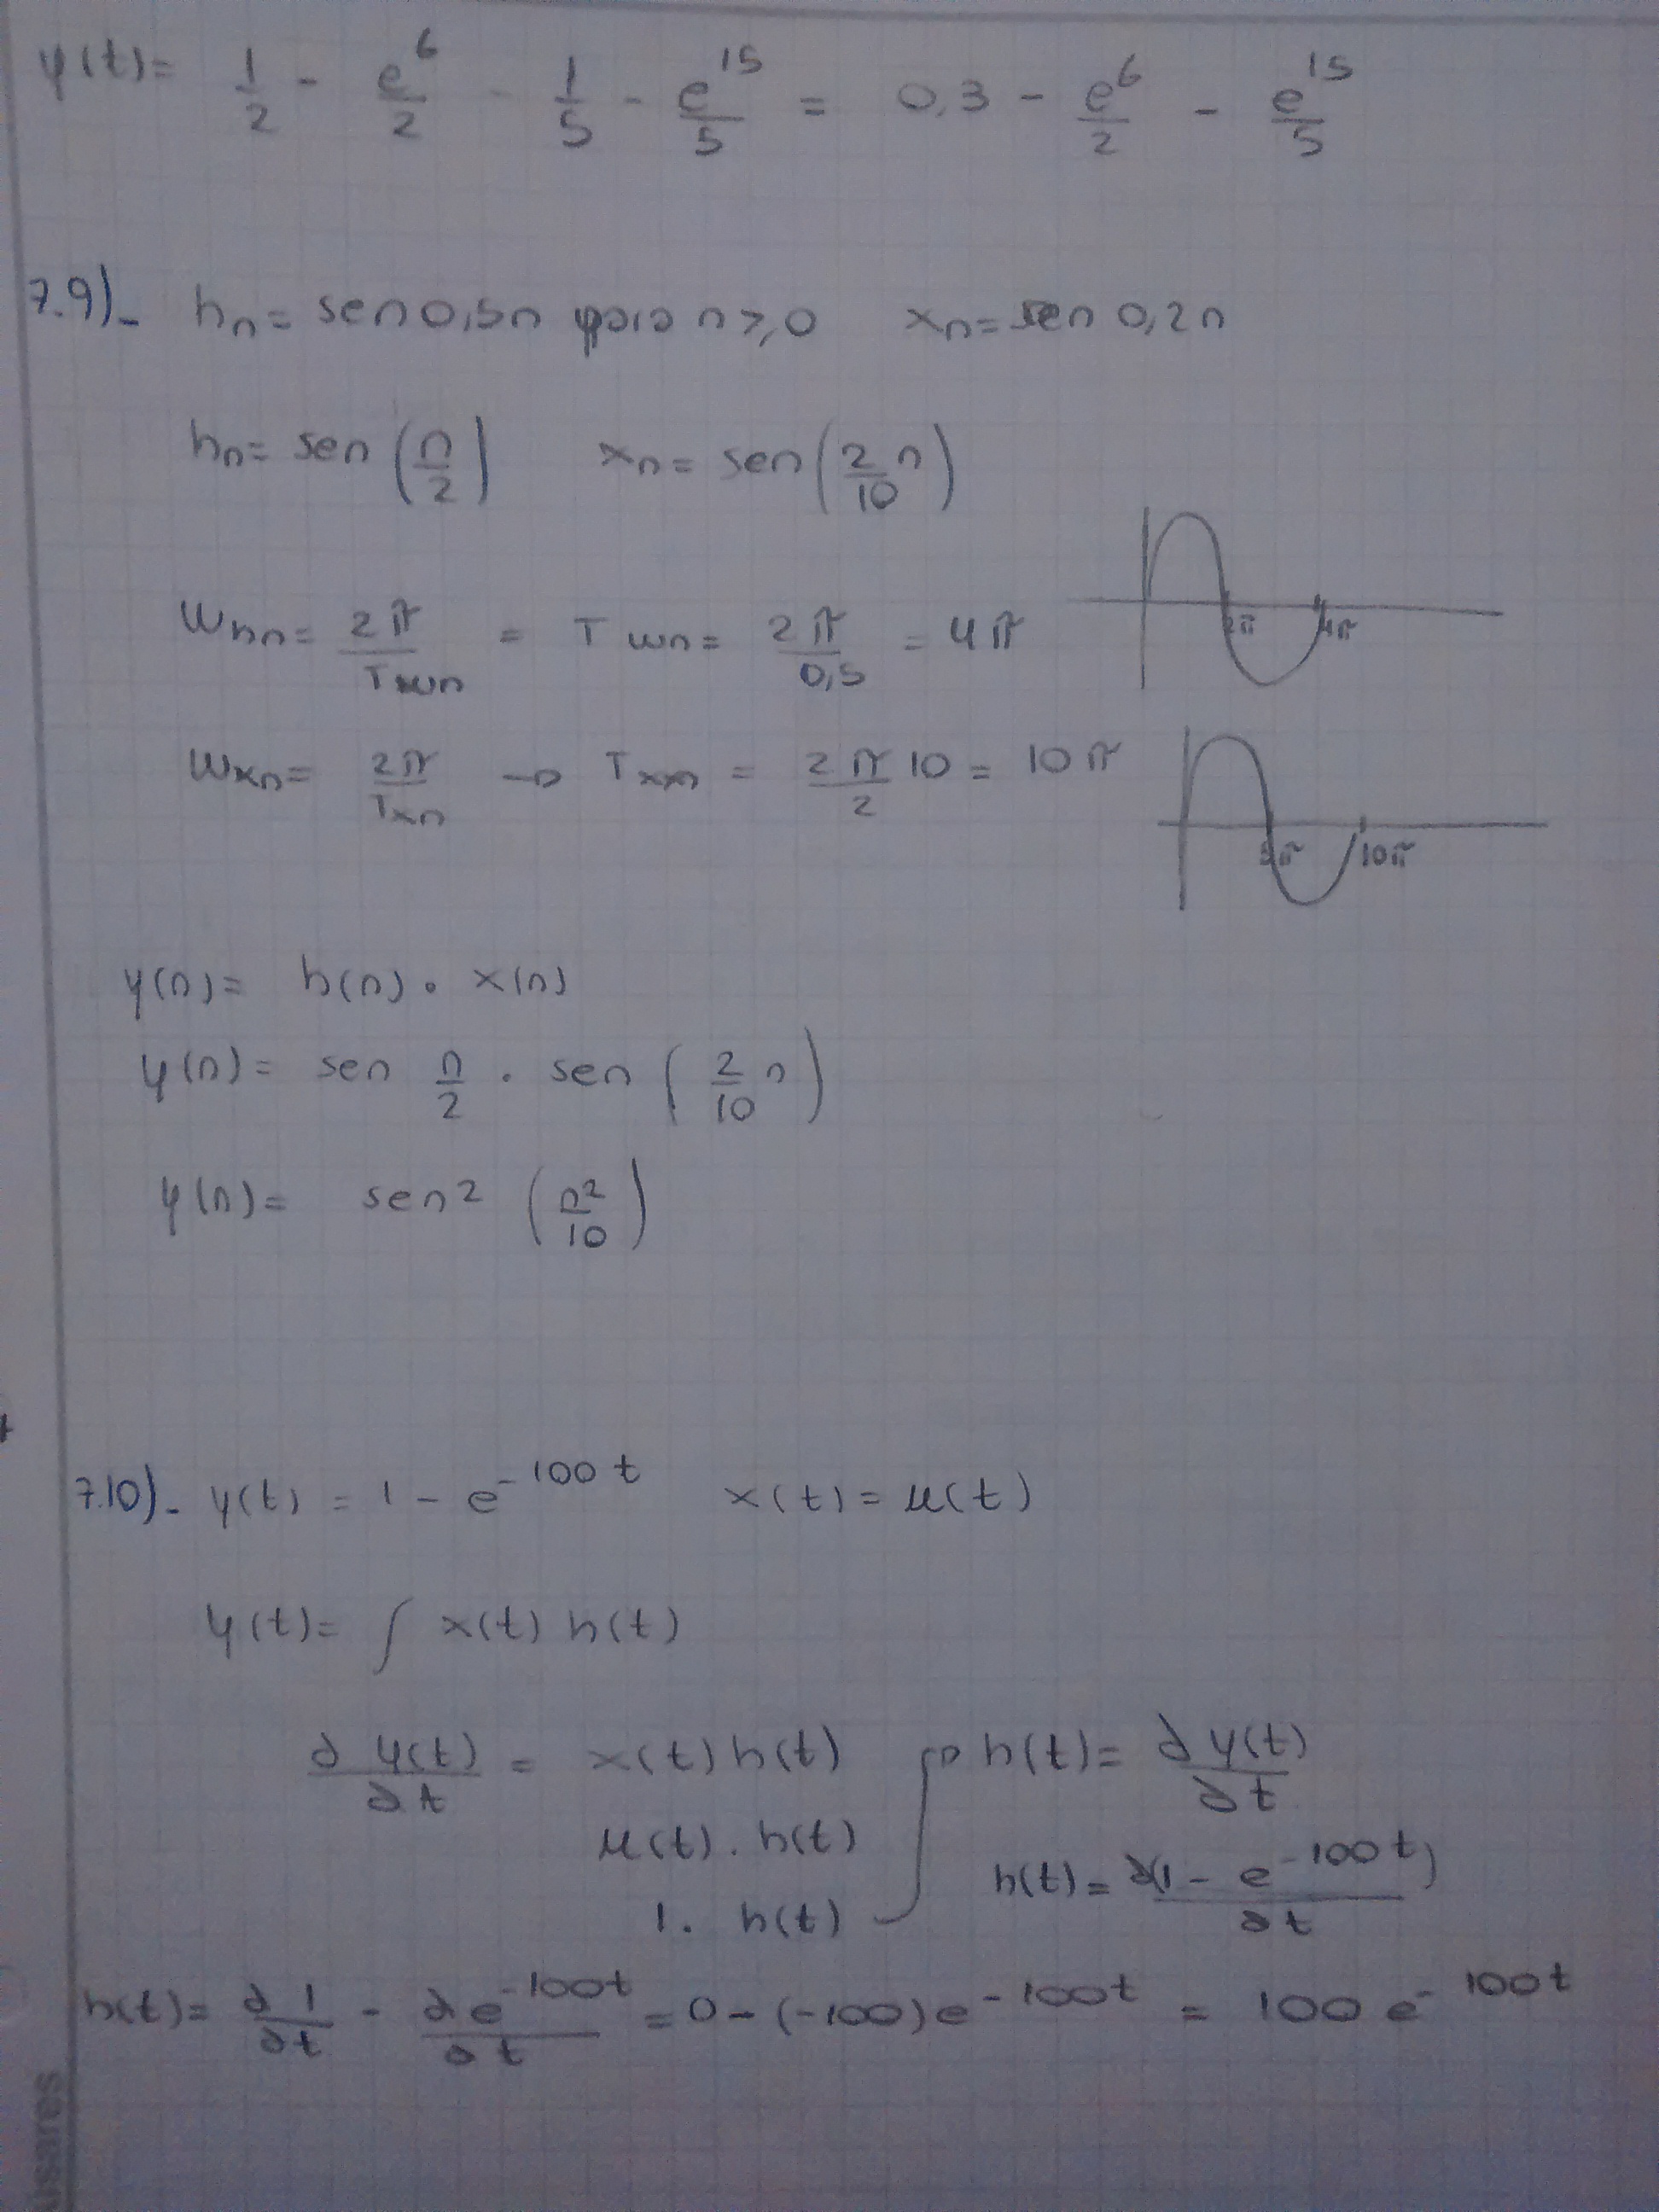 y(t)= 1/2 - e^6/2 - 1/5 - e^15/5 = 0,3 - e^6/2 - e^15/5
7.9)- hn= sen 0,5n para n ≥ 0 xn= sen 0,2n
hn= sen (n/2) xn= sen (2/10 n)
Whn= 2π/Twn = Twn= 2π/0,5 = 4π
2π 4π
Wxn= 2π/Txn → Txn = 2π/2 10 = 10π
5π 10π
y(n)= h(n) · x(n)
y(n)= sen n/2 · sen (2/10 n)
y(n)= sen2 (n2/10)
7.10)- y(t) = 1 - e^-100t x(t) = u(t)
y(t)= ∫ x(t) h(t)
∂y(t)/∂t = x(t) h(t) → h(t)= ∂y(t)/∂t
u(t) . h(t)
h(t)= ∂(1 - e^-100t)/∂t
1. h(t)
h(t)= ∂1/∂t - ∂e^-100t/∂t = 0 - (-100)e^-100t = 100 e^-100t